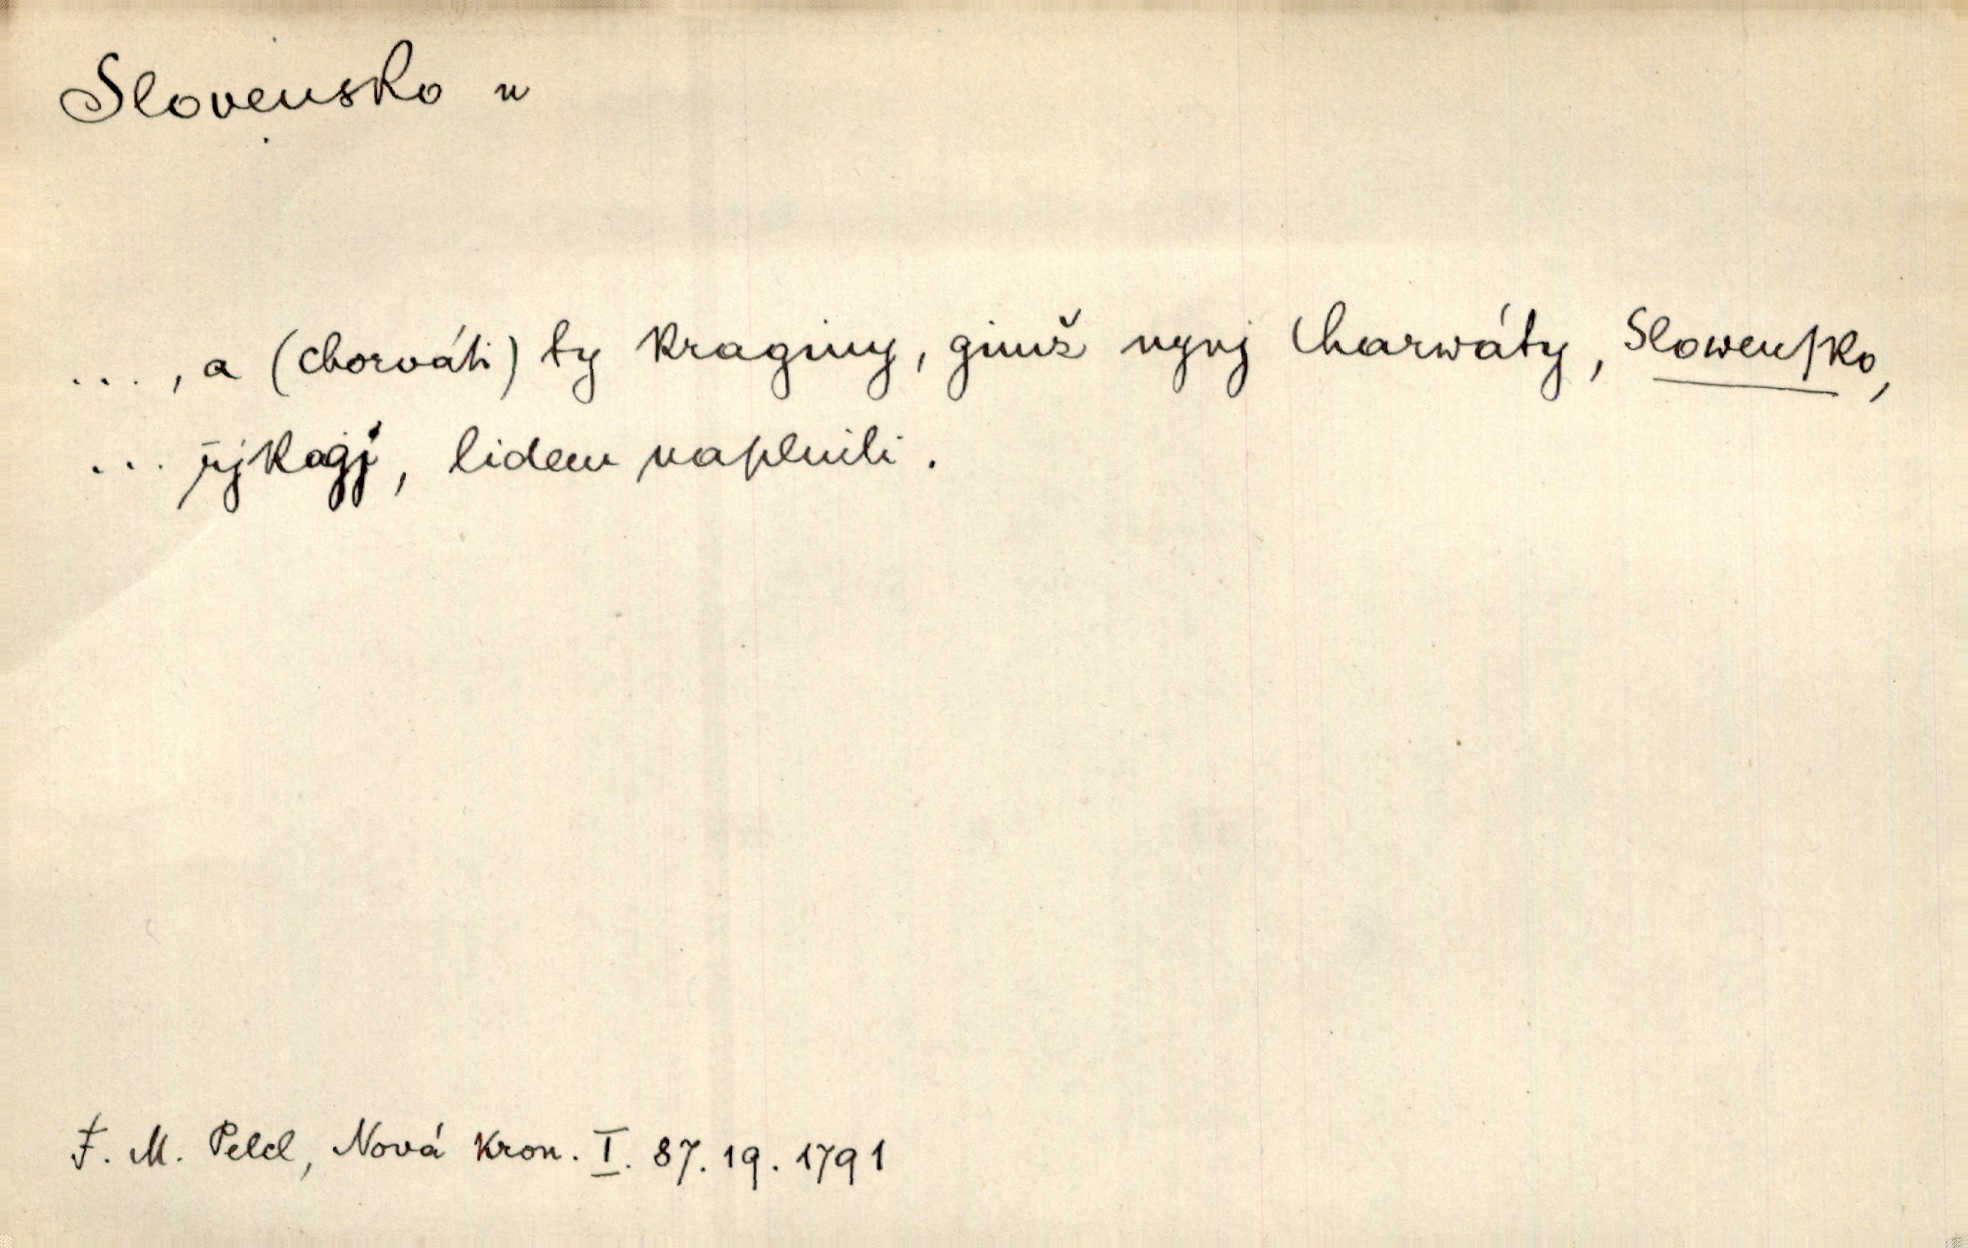 Slovensko n
..., a (chorváti) ty kraginy, gimž nynj Charwáty, Slowenſko,
... řjkagj, lidem naplnili.
F. M. Pelcl, Nová kron. I. 87. 19. 1791